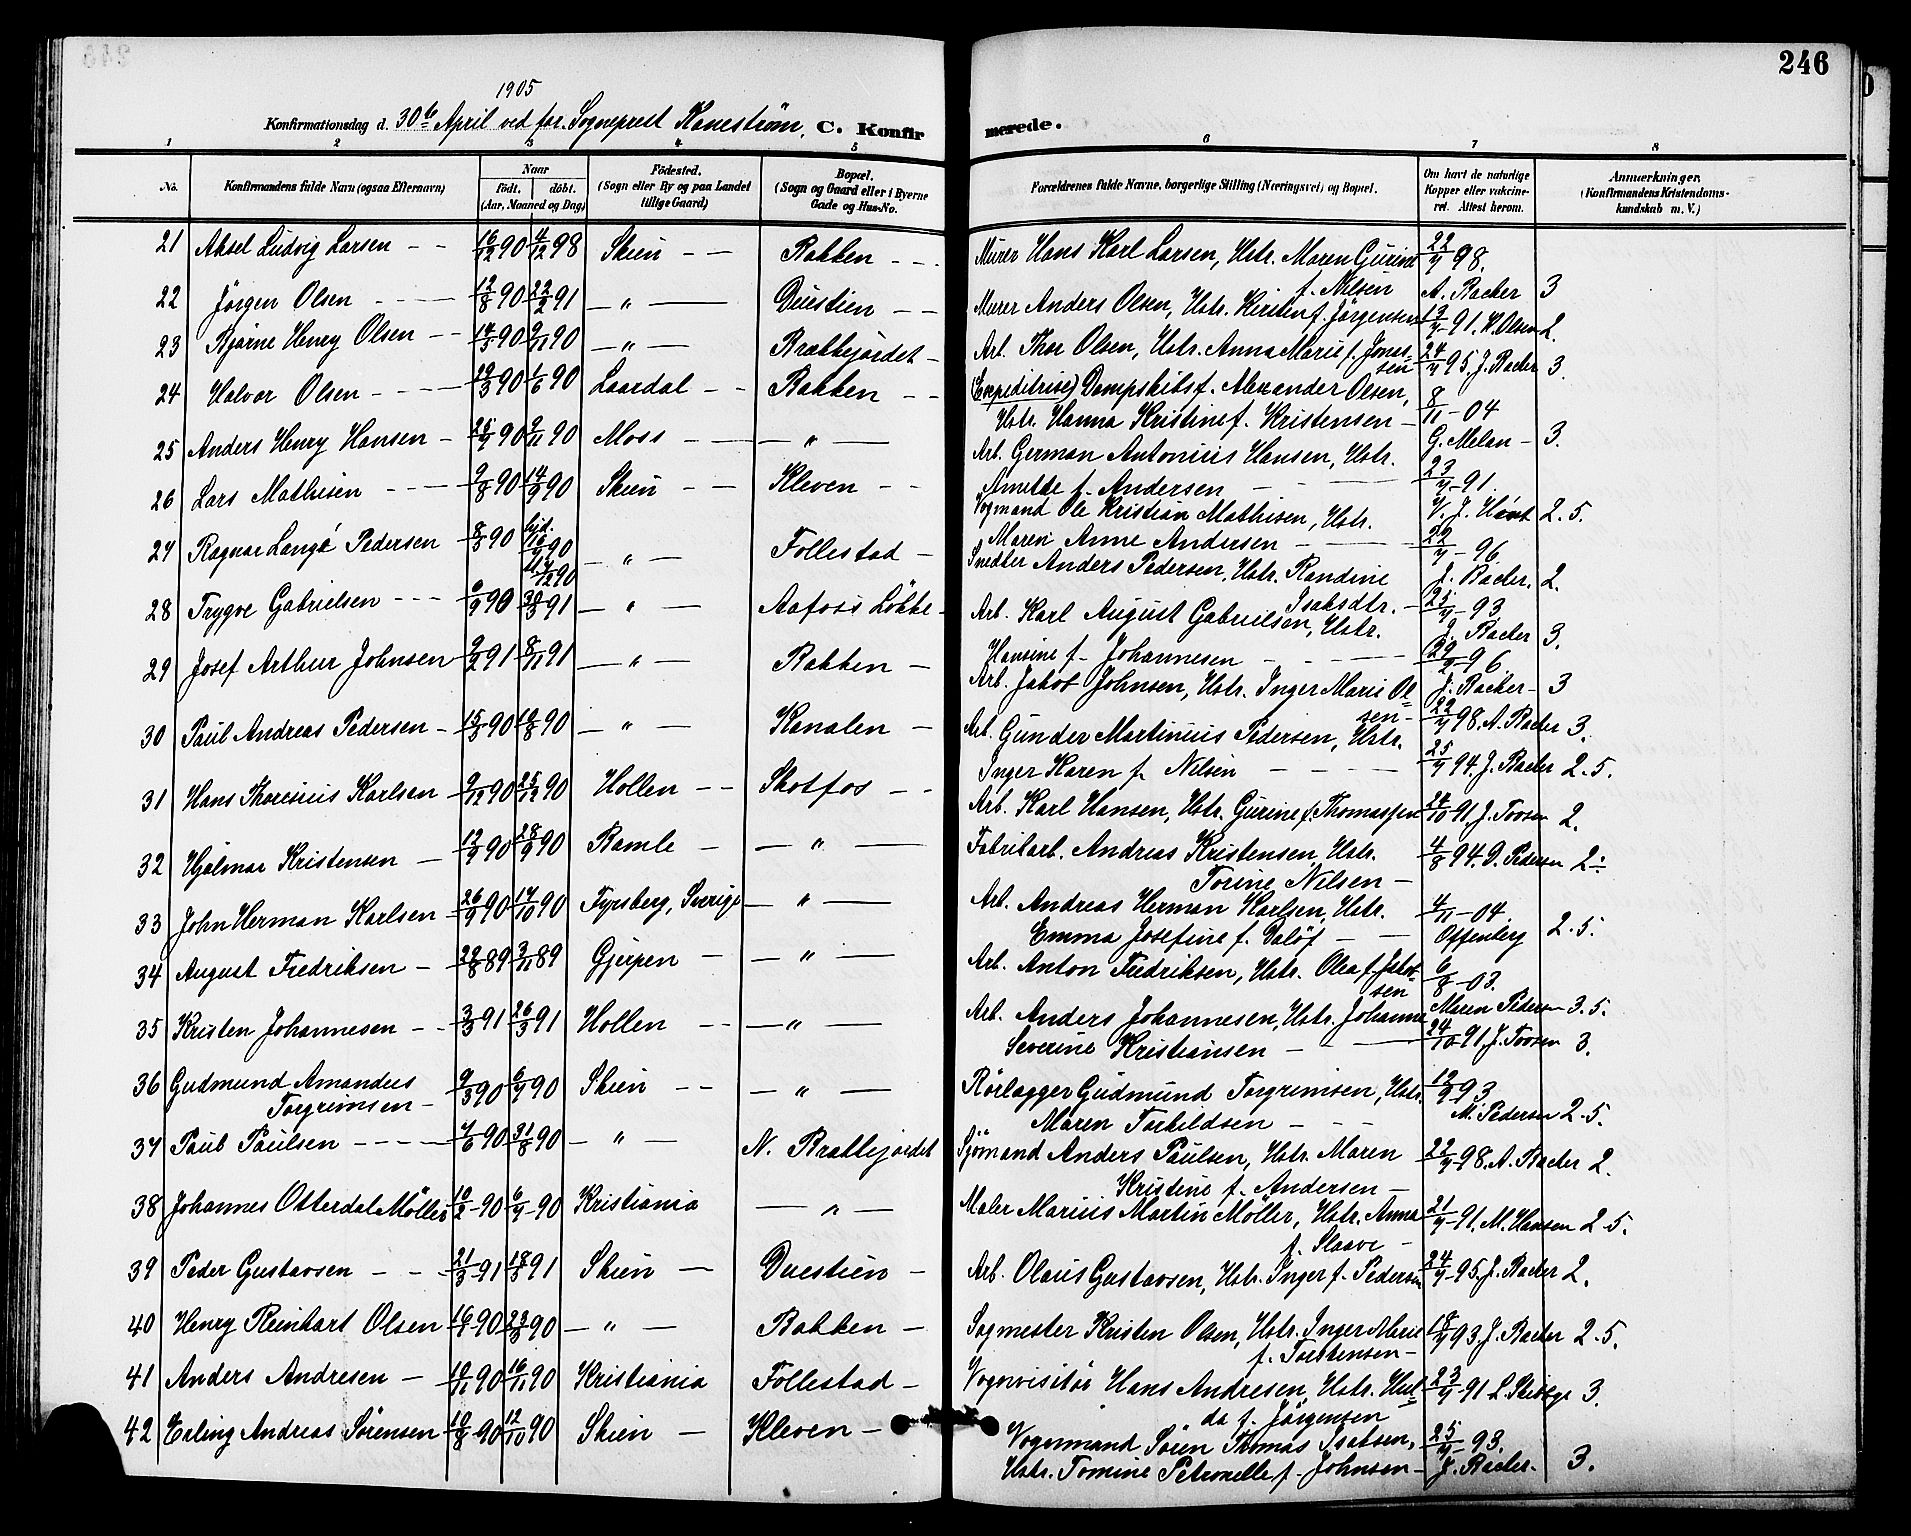 246
1905
Konfirmationsdag d. 30te April ved for. Sogneprest Kanestrøm, C. Konfir merede.
1 2 3 4 5 6 7 8
No. Konfirmandens fulde Navn (ogsaa Efternavn) Naar født. døbt. (Aar, Maaned og Dag) Fødested. (Sogn eller By og paa Landet tillige Gaard) Bopæl. (Sogn og Gaard eller i Byerne Gade og Hus-No. Forældrenes fulde Navne, borgerlige Stilling (Næringsvei) og Bopæl. Om havt de naturlige Kopper eller vakcineret. Attest herom. Anmerkninger. (Konfirmandens Kristendomskundskab m. V.)
21 Aksel Ludvig Larsen 16/12 90 4/12 98 Skien Bakken Murer Hans Karl Larsen, Hstr. Maren Gurine f. Nilsen 22/7 98. A. Backer 3
22 Jørgen Olsen 12/8 90 22/2 91 — " — Duestien Murer Anders Olsen, Hstr. Kirsten f. Jörgensen 13/7 91. K. Olsen 2.
23 Bjarne Henry Olsen 14/3 90 9/11 90 — " — Brattejordet Arb. Thor Olsen, Hstr. Anna Marie f. Jonassen 24/7 95. J. Backer 3.
24 Halvor Olsen 19/3 90 1/6 90 Laardal Bakken (Expeditrise) Dampskibsf. Alexander Olsen,
Hstr. Hanna Kristine f. Kristensen 8/11 - 04 G. Melan 3.
25 Anders Henry Hansen 25/7 90 9/11 90 Moss — " — Arb. German Antonius Hansen, Hstr.
Anette f. Andersen 23/7 - 91. J. Hönt 2.5.
26 Lars Mathisen 9/8 90 14/9 90 Skien Kleven Vogmand Ole Kristian Mathisen, Hstr.
Maren Anne Andersen 22/7 - 96 J. Backer. 2.
27 Ragnar Langé Pedersen 8/3 90 — " — Follestad Snedker Anders Pedersen, Hstr. Randine
Isaksdtr. 25/7 - 93 J. Backer 3.
28 Trygve Gabrielsen 6/9 90 30/3 91 — " — Aafoss Løkke Arb. Karl August Gabrielsen, Hstr.
Hansine f. Johannesen 29/2 96 J. Backer 3
29 Josef Arthur Johnsen 9/2 91 8/11 91 — " — Bakken Arb. Jakob Johnsen, Hstr. Inger Marie Olsen 22/7 98. A. Backer 3.
30 Paul Andreas Pedersen 15/3 90 10/8 90 — " — Kanalen Arb. Gunder Martinius Pedersen, Hstr.
Inger Karen f. Nilsen 25/7 94. J. Backer 2.5.
31 Hans Thoresius Karlsen 9/12 90 25/12 90 Hollen Skotfos Arb. Karl Hansen, Hstr. Gurine f. Thomassen 24/10 91, J. Tovsen 2.
32 Hjalmar Kristensen 12/9 90 28/9 90 Bamle — " — Fabrikarb. Andreas Kristensen, Hstr.
Torine Nilsen 4/8 94. D. Pedersen 2÷
33 John Herman Karlsen 26/9 90 17/10 90 Fyrsberg, Sverige — " — Arb. Andreas Herman Karlsen, Hstr.
Emma Josefine f. Dalöf 4/11 - 04. Offenberg 2.5.
34 August Fredriksen 22/8 89 3/11 89 Gjerpen — " — Arb. Anton Fredriksen, Hstr. Olea f. Jakobsen 6/8 - 03. Maren Pedersen 3.5.
35 Kristen Johannesen 3/3 91 26/3 91 Hollen — " — Arb. Anders Johannesen, Hstr. Johanne
Severine Kristiansen 24/10 91, J. Tovsen 3.
36 Gudmund Amandus
Torgrimsen 9/3 90 6/7 90 Skien — " — Rörlægger Gudmund Torgrimsen, Hstr.
Maren Torkildsen 12/9 93. M. Pedersen 2.5.
37 Paul Paulsen 7/6 90 31/8 90 — " — N. Brattejordet Sjømand Anders Paulsen, Hstr. Maren
Kristine f. Andersen 22/7 98. A. Backer 2.
38 Johannes Otterdal Møller 10/2 - 90 6/7 - 90 Kristiania — " — Maler Marius Martin Møller, Hstr. Anna
f. Slaave 21/7 - 91. M. Hansen 2.5.
39 Peder Gustavsen 21/3 - 91 18/8 91 Skien Duestien Arb. Olaus Gustavsen, Hstr. Inger f. Pedersen 24/7 - 95. J. Backer 2.
40 Henry Reinhart Olsen 90 23/8 90 — " — Bakken Sagmester Kristen Olsen, Hstr. Inger Marie
f. Torstensen 18/7 93. J. Backer 2.5.
41 Anders Andresen 90 16/11 90 Kristiania Follestad Vognvisitör Hans Andresen, Hstr. Hulda f. Jörgensen 23/7 - 91 3.
42 Erling Andreas Sörensen 10/8 - 90 12/10 90 Skien Kleven Vognmand Sören Thomas Isaksen,
Hstr. Tomine Petronelle f. Johnsen 25/7 - 93. J. Backer. 3.